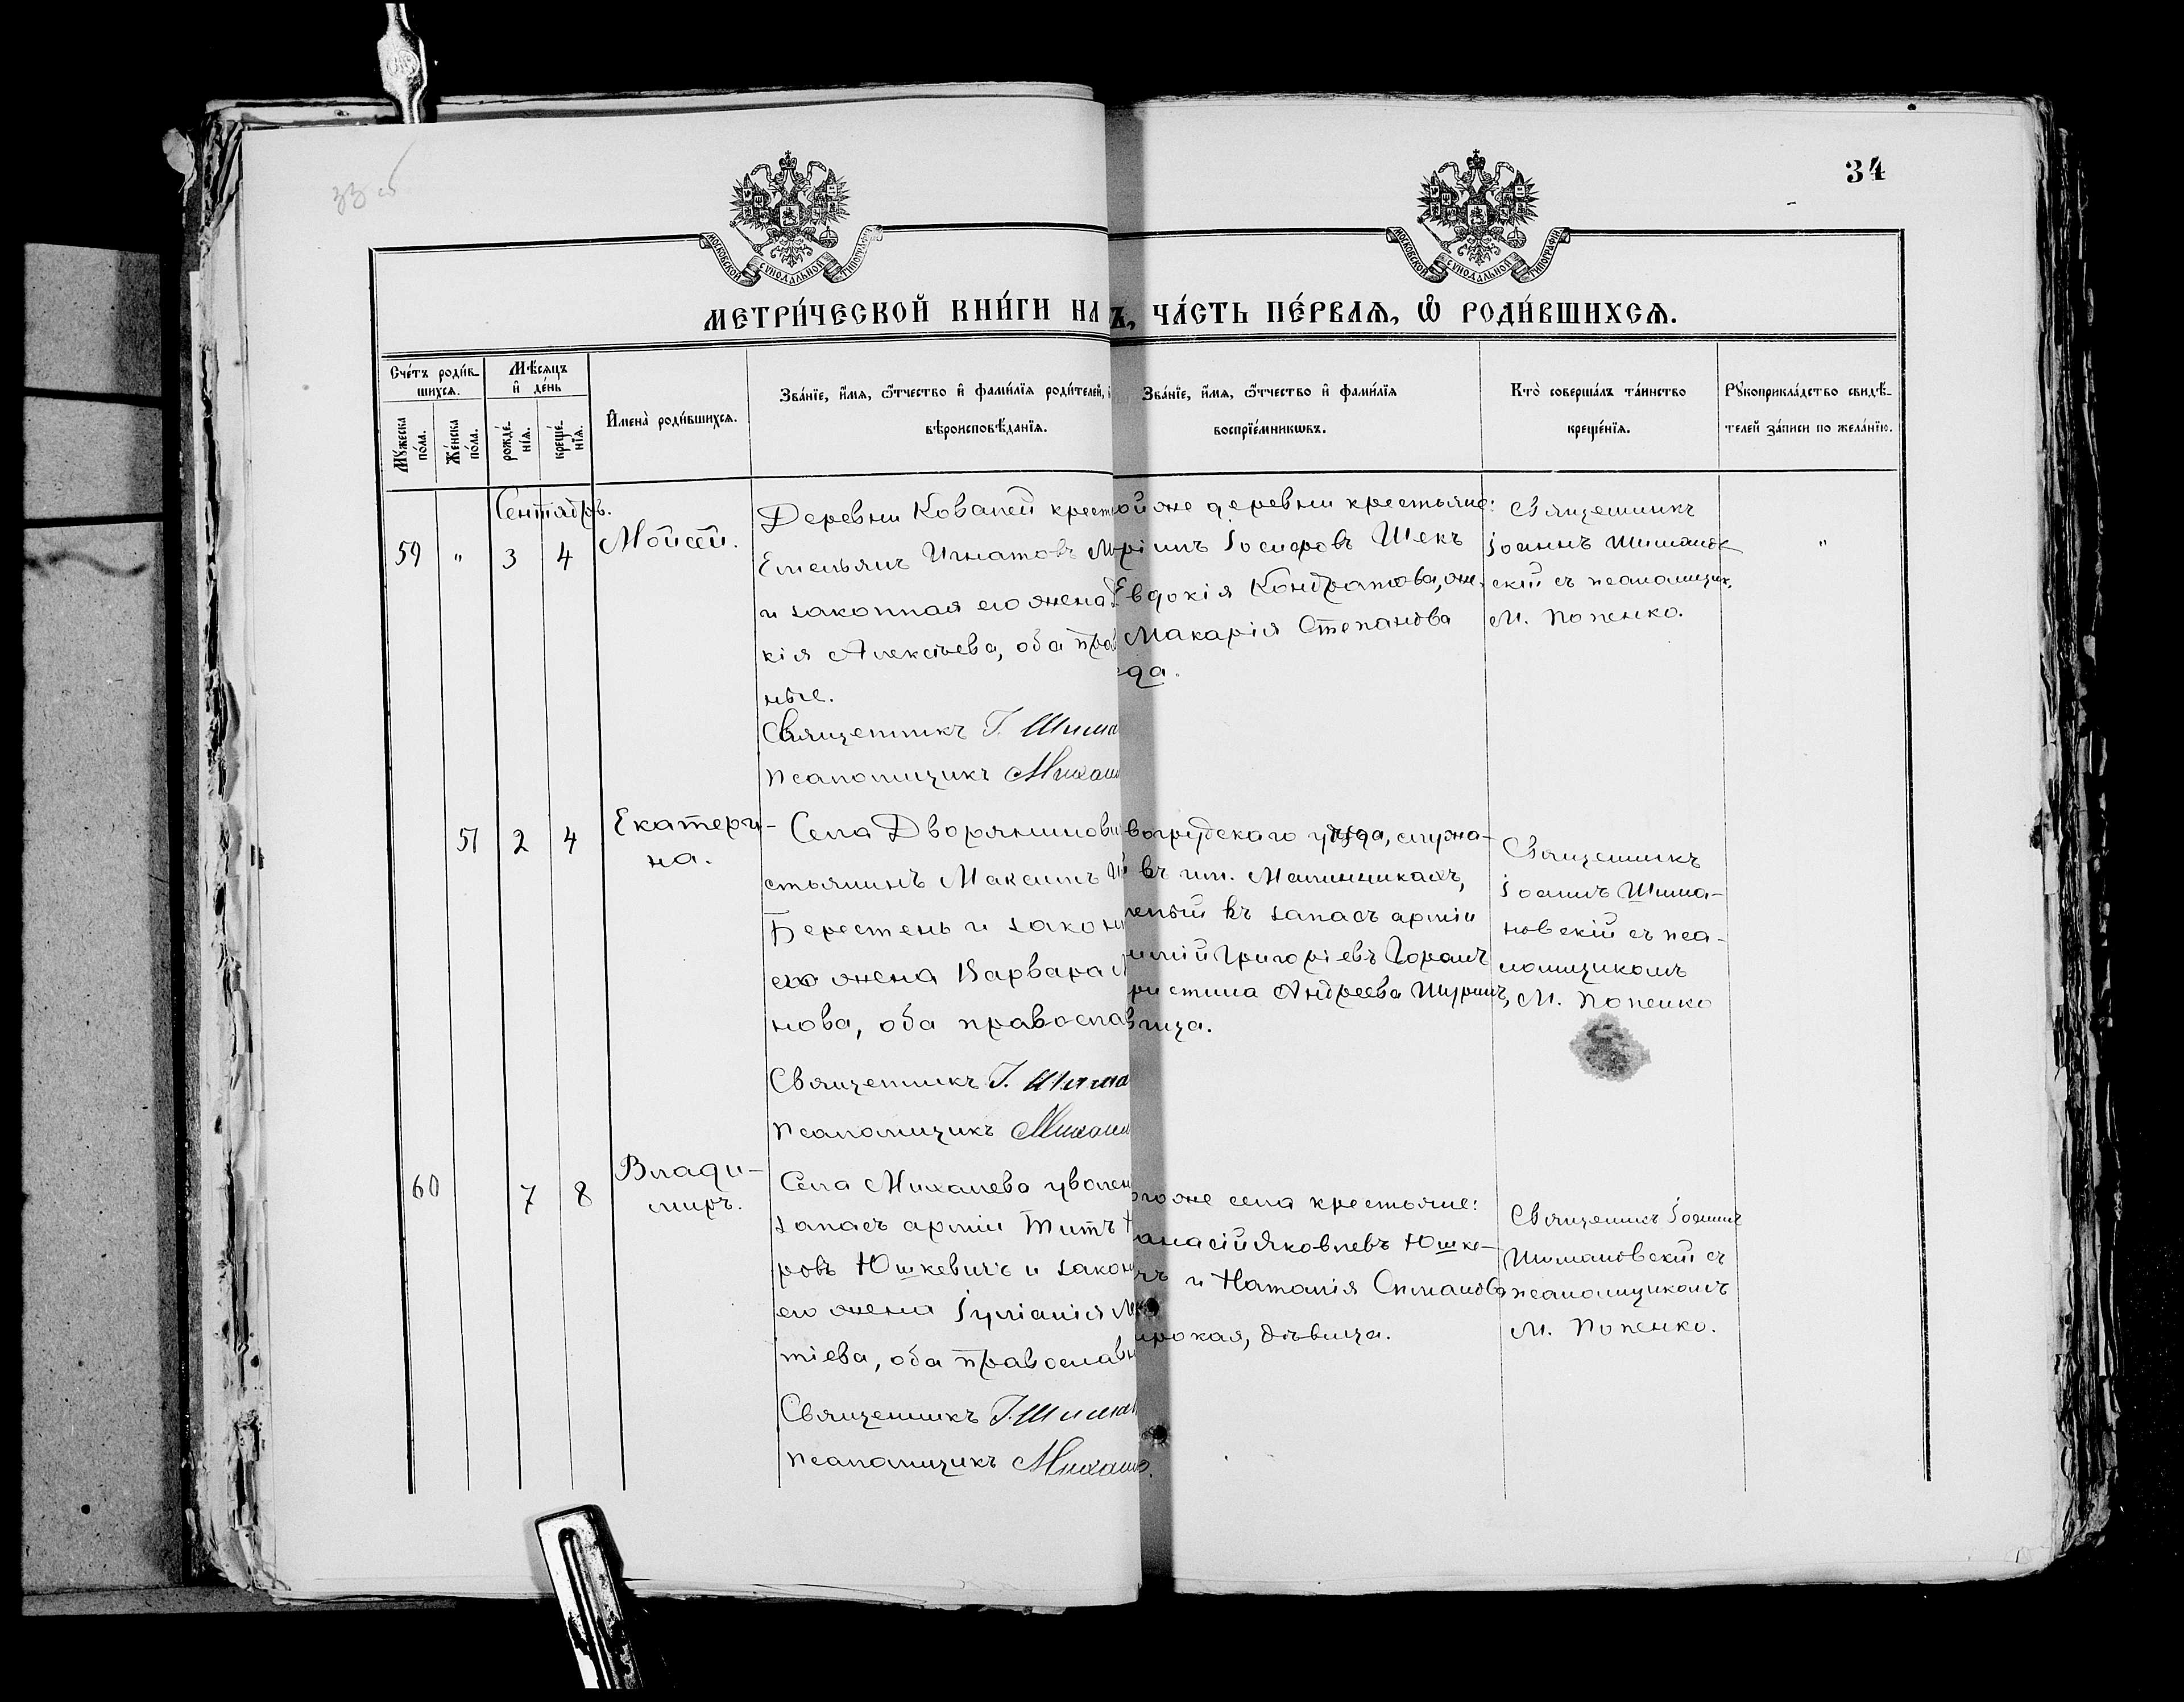 34
МОСКОВСКОЙ СУНОДАЛЬНОЙ ТИПОГРАФІИ
МОСКОВСКОЙ СУНОДАЛЬНОЙ ТИПОГРАФІИ
МЕТРИ́ЧЕСКОЙ КНИ́ГИ НА
Ъ, ЧА́СТЬ ПЕ́РВАѦ, Ѡ҆ РОДИ́ВШИХСѦ.
Сче́тъ роди́в
шихсѧ.
Мꙋ́жеска
по́ла.
Же́нска
по́ла.
Мѣ́сѧцъ
и҆ де́нь
рожде́
нїѧ.
креще́
нїѧ.
И҆мена̀ роди́вшихсѧ.
Зва́нїе, и҆́мѧ, ѻ҆́тчество и҆ фами́лїѧ роди́телей,
вѣроисповѣ́данїѧ.
Зва́нїе, и҆́мѧ, ѻ҆́тчество и҆ фами́лїѧ
воспрїе́мникѡвъ.
Кто̀ соверша́лъ та́инство
креще́нїѧ.
Рꙋкоприкла́дство свидѣ́-
телей за́писи по жела́нїю.
Сентябрь.
59 " 3 4
Моисей.
Деревни Ковалей крест
Емельянъ Игнатовъ М
и законная его жена Е
кія Алексѣева, оба прав
ные.
Священникъ І. Шима
Псаломщикъ Михаил
ой же деревни крестьяне:
Іосифовъ Шекъ
Евдокія Кондратова, же.
Макарія Степанова
еда.
Священникъ
Іоаннъ Шиманов
скій съ псаломщик.
М. Попенко.
"
51 2 4
Екатери-
на.
Села Дворянинови
стьянинъ Максимъ
Берестень и закон
его жена Варвара
нова, оба православ
Священникъ І. Шима
Псаломщикъ Михаил
вогрудскаго уѣзда, служа-
въ им. Малинникахъ,
ленный въ запасъ арміи
Григоріевъ Горанъ
ристина Андреева Шурин,
вица.
Священникъ
Іоаннъ Шима-
новскій съ пса-
ломщикомъ
М. Попенко
60 7 8
Влади-
миръ.
Села Михалева уволен
запасъ арміи Титъ
ровъ Юшкевичъ и закон
его жена Іуліанія М
тіева, оба православн
Священникъ І. Шиман
Псаломщикъ Михаил
ого же села крестьяне:
анасій Яковлевъ Юшке-
чъ и Наталія Симанова
ирокая, дѣвица.
Священникъ Іоаннъ
Шимановскій съ
псаломщикомъ
М. Попенко.